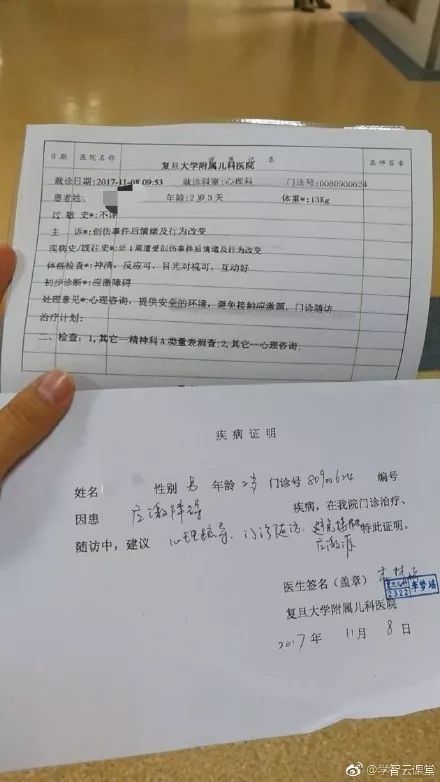 日期 医院名称 医师签章
复旦大学附属儿科医院
就诊日期:2017-11-08 09:53 就诊科室:心理科 门诊号:0080900624
患者姓 年龄:2岁3天 体重*:13Kg
过敏史*:不详
主 诉*:创伤事件后情绪及行为改变
现病史/既往史*:近1周遭受创伤事件后情绪及行为改变
体格检查*:神清,反应可,目光对视可,互动好
初步诊断*:应激障碍
处理意见*:心理咨询,提供安全的环境,避免接触应激源,门诊随访
治疗计划:
二、检查:1,其它--精神科A类量表测查;2,其它--心理咨询
疾病证明
姓名 性别 男 年龄 2岁 门诊号 80900624 编号
因患 应激障碍 疾病,在我院门诊治疗、
随访中,建议 心理疏导、门诊随访、避免接触 特此证明。
应激源
医生签名(盖章)
2322 李梦瑶
复旦大学附属儿科医院
2017年 11月 8日
@学智云课堂